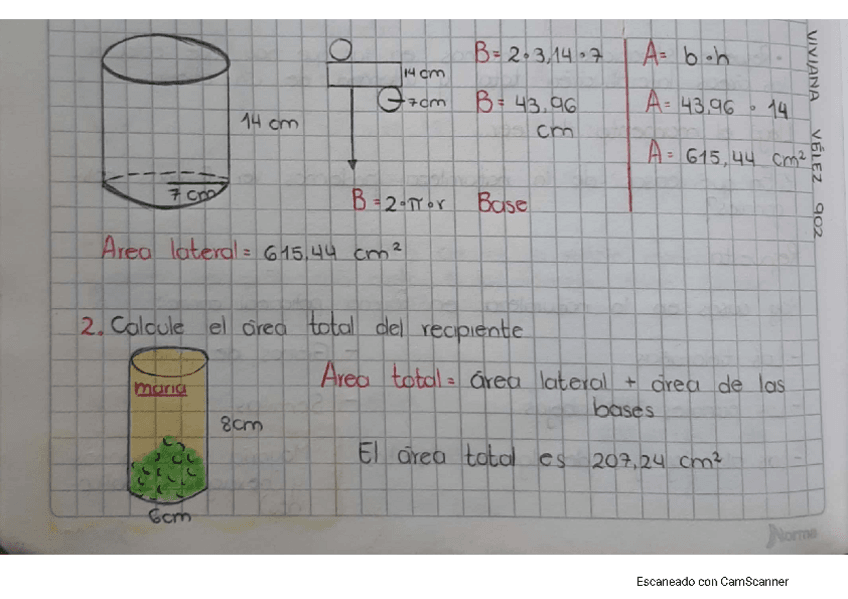 14 cm
7 cm
14 cm
7cm
B = 2 · π · r Base
B = 2 · 3,14 · 7
B = 43,96
cm
A = b · h
A = 43,96 · 14
A = 615,44 cm²
VIVIANA VÉLEZ 902
Area lateral = 615,44 cm²
2. Calcule el área total del recipiente
maria
8cm
6cm
Area total = área lateral + área de las
bases
El área total es 207,24 cm²
Norma
Escaneado con CamScanner